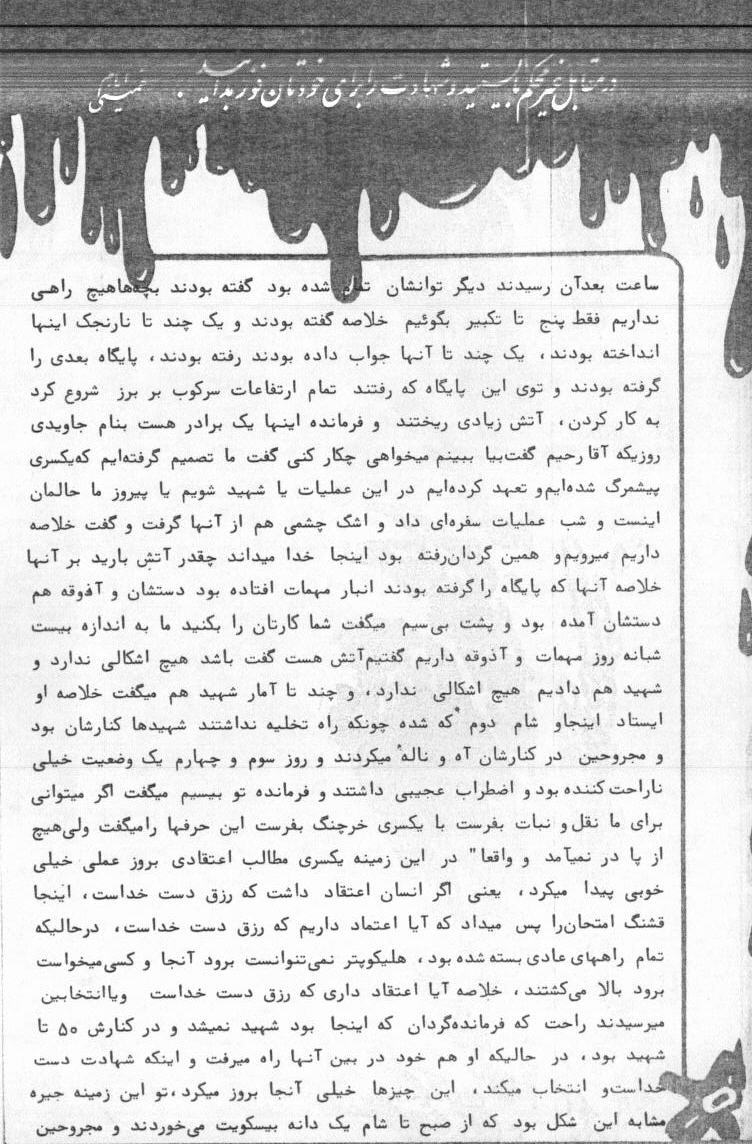 در مقابل غیر محکم بایستید و شهادت را برای خودتان فوز بدانید
امام خمینی
ساعت بعدآن رسیدند دیگر توانشان تمام شده بود گفته بودند بچه‌هاهیچ راهی
نداریم فقط پنج تا تکبیر بگوئیم خلاصه گفته بودند و یک چند تا نارنجک اینها
انداخته بودند، یک چند تا آنها جواب داده بودند رفته بودند، پایگاه بعدی را
گرفته بودند و توی این پایگاه که رفتند تمام ارتفاعات سرکوب بر برز شروع کرد
به کار کردن، آتش زیادی ریختند و فرمانده اینها یک برادر هست بنام جاویدی
روزیکه آقا رحیم گفت‌بیا ببینم میخواهی چکار کنی گفت ما تصمیم گرفته‌ایم که‌یکسری
پیشمرگ شده‌ایم‌و تعهد کرده‌ایم در این عملیات یا شهید شویم یا پیروز ما حالمان
اینست و شب عملیات سفره‌ای داد و اشک چشمی هم از آنها گرفت و گفت خلاصه
داریم میرویم‌و همین گردان‌رفته بود اینجا خدا میداند چقدر آتش بارید بر آنها
خلاصه آنها که پایگاه را گرفته بودند انبار مهمات افتاده بود دستشان و آذوقه هم
دستشان آمده بود و پشت بی‌سیم میگفت شما کارتان را بکنید ما به اندازه بیست
شبانه روز مهمات و آذوقه داریم گفتیم‌آتش هست گفت باشد هیچ اشکالی ندارد و
شهید هم دادیم هیچ اشکالی ندارد، و چند تا آمار شهید هم میگفت خلاصه او
ایستاد اینجاو شام دوم که شده چونکه راه تخلیه نداشتند شهیدها کنارشان بود
و مجروحین در کنارشان آه و ناله میکردند و روز سوم و چهارم یک وضعیت خیلی
ناراحت‌کننده بود و اضطراب عجیبی داشتند و فرمانده تو بیسیم میگفت اگر میتوانی
برای ما نقل و نبات بفرست با یکسری خرچنگ بفرست این حرفها رامیگفت ولی‌هیچ
از پا در نمیآمد و واقعا" در این زمینه یکسری مطالب اعتقادی بروز عملی خیلی
خوبی پیدا میکرد، یعنی اگر انسان اعتقاد داشت که رزق دست خداست، اینجا
قشنگ امتحان‌را پس میداد که آیا اعتماد داریم که رزق دست خداست، درحالیکه
تمام راههای عادی بسته شده بود، هلیکوپتر نمی‌توانست برود آنجا و کسی‌میخواست
برود بالا می‌کشتند، خلاصه آیا اعتقاد داری که رزق دست خداست ویاانتخابین
میرسیدند راحت که فرمانده‌گردان که اینجا بود شهید نمیشد و در کنارش ۵۰ تا
شهید بود، در حالیکه او هم خود در بین آنها راه میرفت و اینکه شهادت دست
خداست‌و انتخاب میکند، این چیزها خیلی آنجا بروز میکرد،تو این زمینه جیره
مشابه این شکل بود که از صبح تا شام یک دانه بیسکویت می‌خوردند و مجروحین